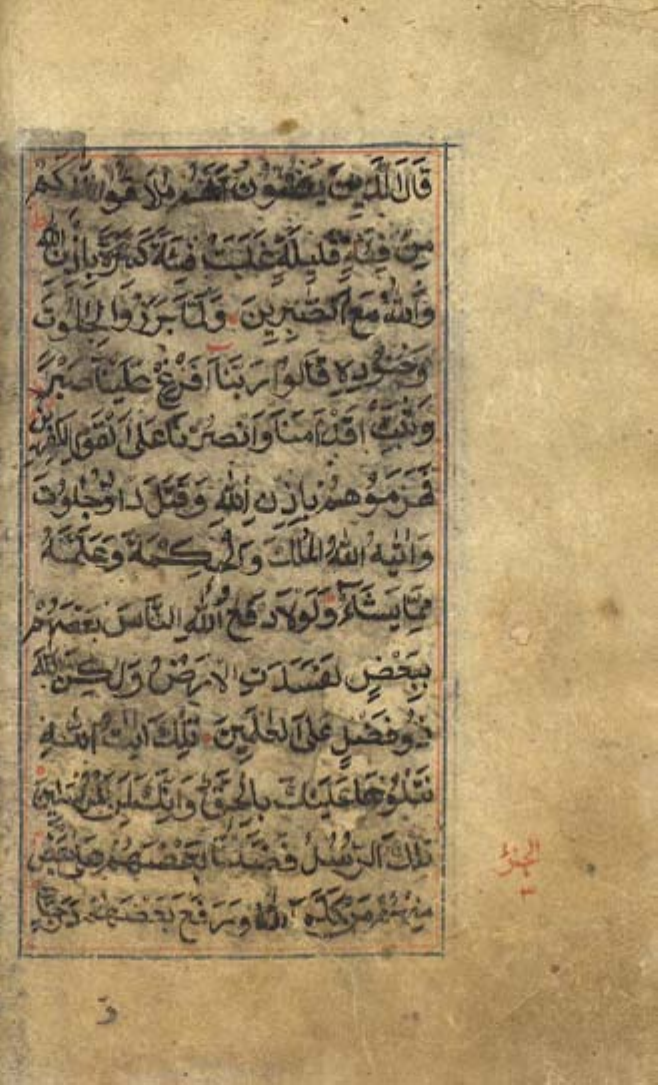 قَالَ الَّذِينَ يَظُنُّونَ اَنَّهُمْ مُلَاقُوا اللَّهِ كَمْ
مِنْ فِئَةٍ قَلِيلَةٍ غَلَبَتْ فِئَةً كَثِيرَةً بِاِذْنِ اللَّهِ
وَاللَّهُ مَعَ الصَّبِرِينَ وَلَمَّا بَرَزُوا لِجَالُوتَ
وَجُنُودِهِ قَالُوا رَبَّنَا اَفْرِغْ عَلَيْنَا صَبْرًا
وَثَبِّتْ اَقْدَامَنَا وَانْصُرْنَا عَلَى الْقَوْمِ الْكَفِرِينَ
فَهَزَمُوهُمْ بِاِذْنِ اللَّهِ وَقَتَلَ دَاوُدُ جَالُوتَ
وَاتَيهُ اللَّهُ الْمُلْكَ وَالْحِكْمَةَ وَعَلَّمَهُ
مِمَّا يَشَآءُ وَلَوْلَا دَفْعُ اللَّهِ النَّاسَ بَعْضَهُمْ
بِبَعْضٍ لَفَسَدَتِ الْاَرْضُ وَلَكِنَّ اللَّهَ
ذُو فَضْلٍ عَلَى الْعَلَمِينَ تِلْكَ ايَتُ اللَّهِ
نَتْلُوهَا عَلَيْكَ بِالْحَقِّ وَاِنَّكَ لَمِنَ الْمُرْسَلِينَ
تِلْكَ الرُّسُلُ فَضَّلْنَا بَعْضَهُمْ عَلَى بَعْضٍ
مِنْهُمْ مَنْ كَلَّمَ اللَّهُ وَرَفَعَ بَعْضَهُمْ دَرَجَتٍ
الجزؤ